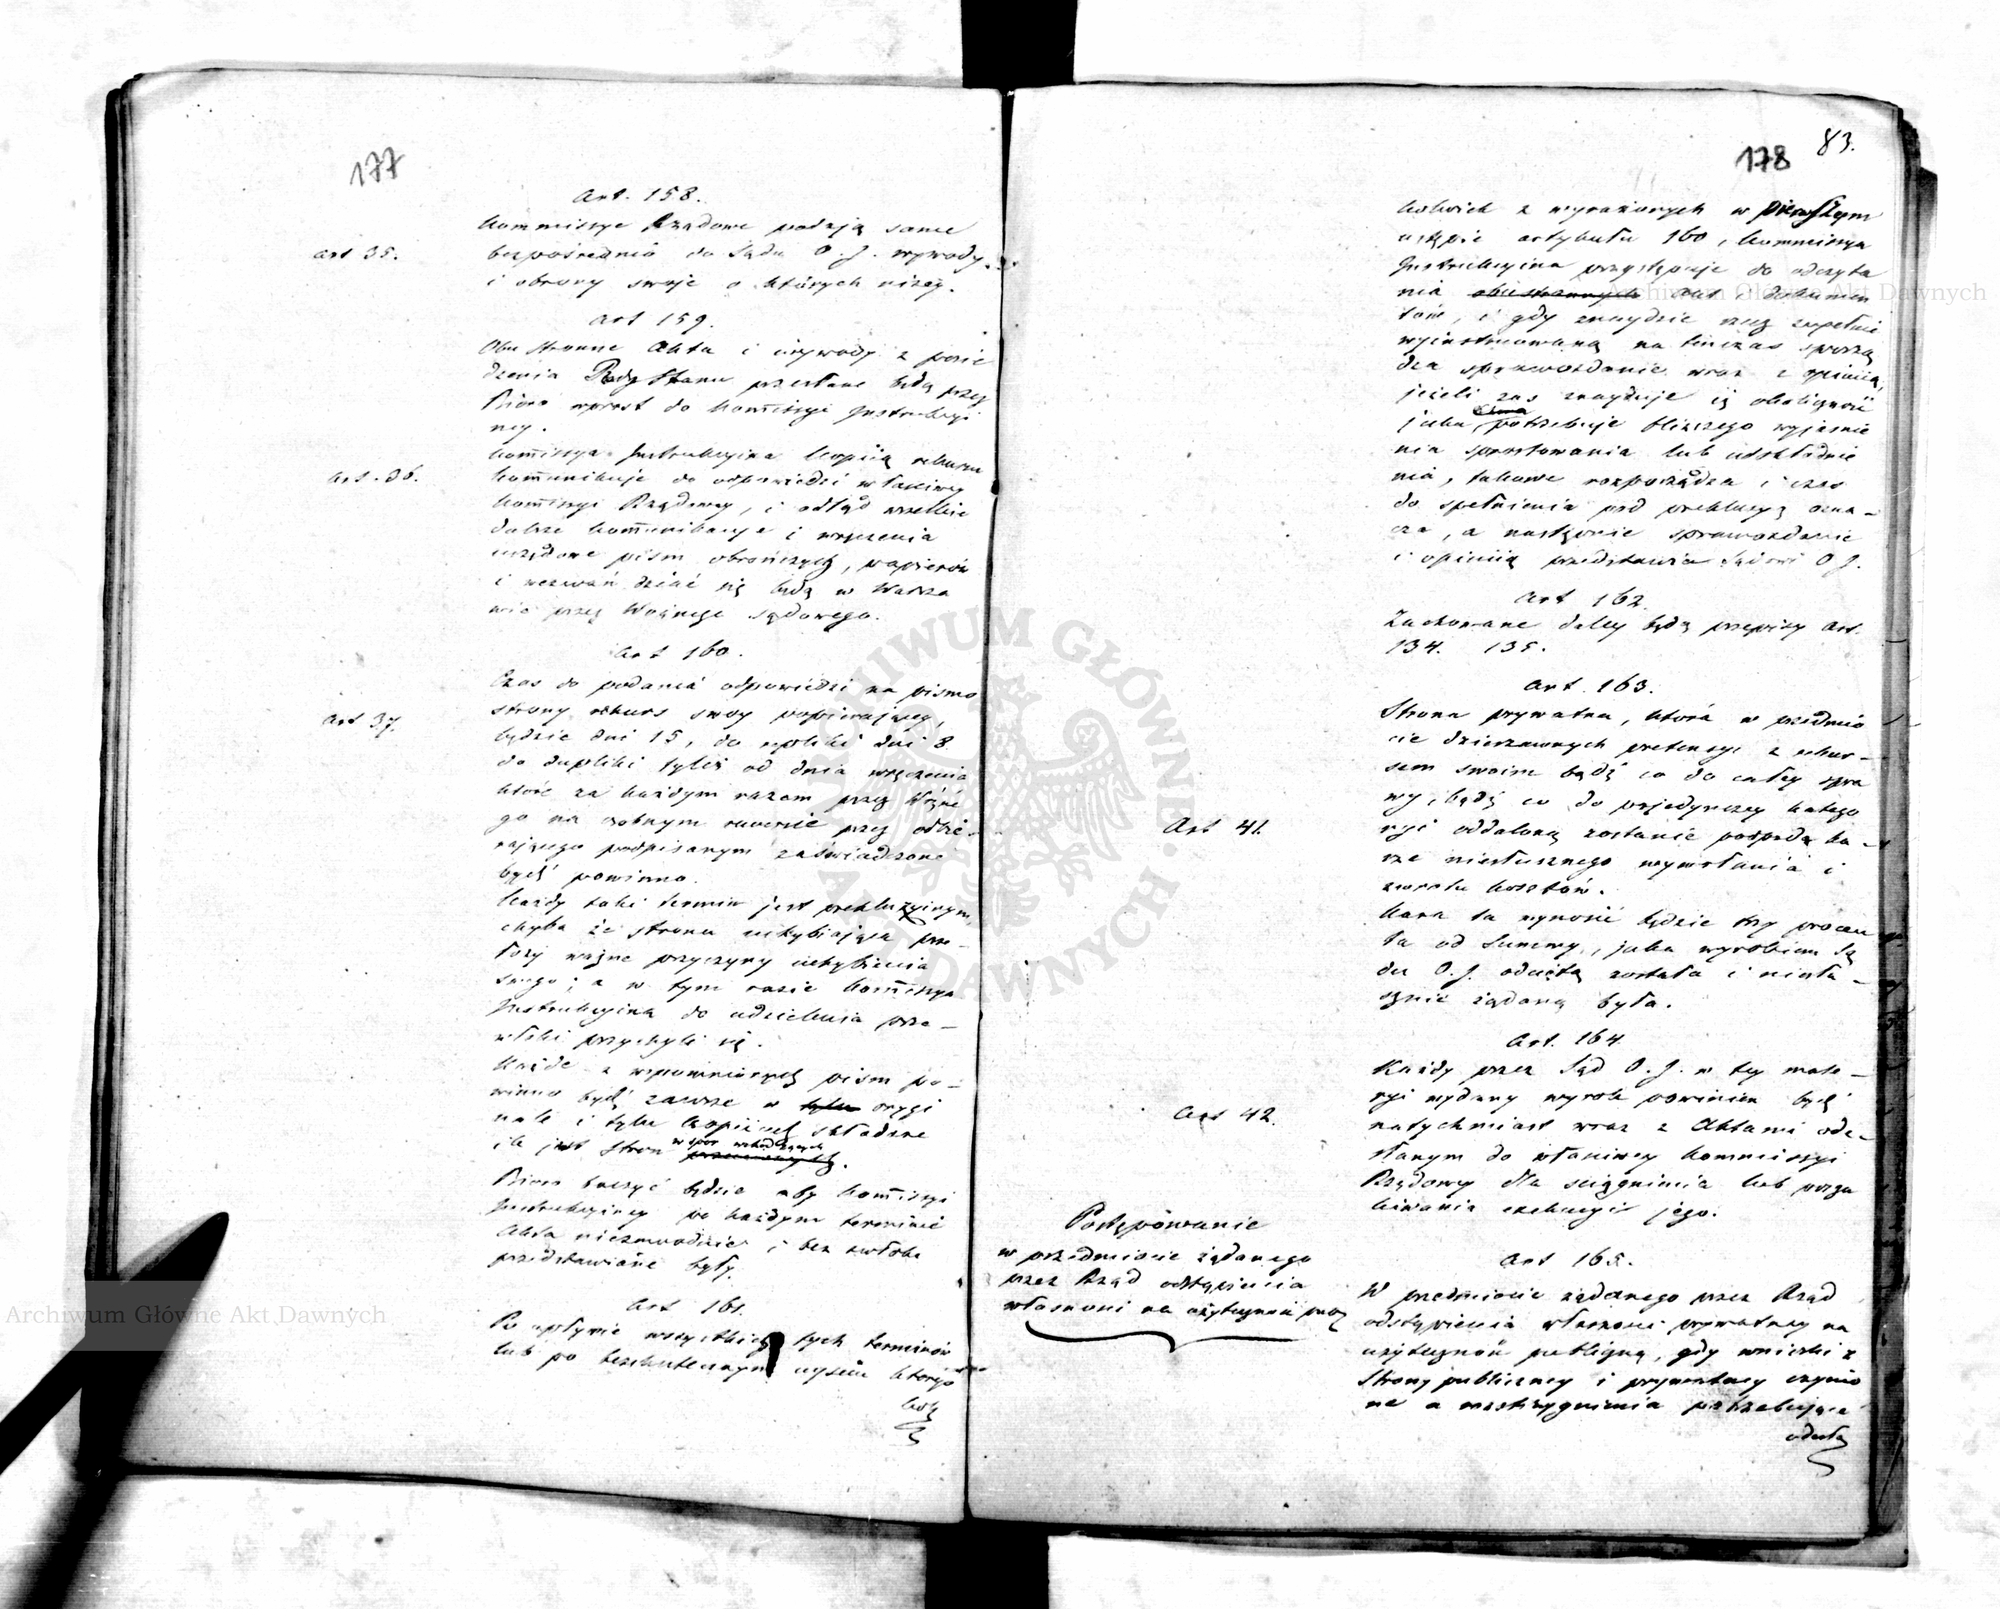 177
Art. 158.
art 35.
Kommissye Rządowe podają same
bezpośrednio do Sądu O. J. wywody
i obrony swoje o których niżey.
Art 159.
Obustronne Akta i wywody z posie
dzenia Rady Stanu przesłane będą przez
Bióro wprost do Kommissyi Instrukcyi
ney.
art. 36.
Kommissya Instrukcyina kopiią rekursu
kommunikuje do odpowiedzi właściwey
Kommissyi Rządowey, i odtąd wszelkie
dalsze kommunikacye i wręczenia
urzędowe pism obrończych, papierów
i wezwań dziać się będą w Warsza
wie przez Woźnego sądowego.
Art 160.
art 37.
Czas do podania odpowiedzi na pismo
strony rekurs swoy popierającey,
będzie dni 15, do repliki dni 8.
do dupliki tyleż od dnia wręczenia
które za każdym razem przez Woźne
go na osobnym rewersie przez odbie-
rającego podpisanym zaświadczone
bydź powinno.
Każdy taki termin jest prekluzyinym,
chyba że strona uchybiająca prze-
łoży ważne przyczyny uchybienia
swego; a w tym razie Kommissya
Instrukcyina do udzielenia prze-
włoki przychyli się.
Każde z wspomnionych pism po-
winno bydź zawsze w tylu orygi
nale i tylu kopiiach składane
ile jest Stron w spór wchodzących
.
Bióro baczyć będzie aby Kommissyi
Instrukcyiney po każdym terminie
Akta niezawodnie i bez zwłoki
przedstawione były.
Art 161.
Po upływie wszystkich tych terminów
lub po bezskutecznym upływie którego
kol
178
83.
kolwiek z wyrażonych w pierwszym
ustępie artykułu 160, Kommissya
Instrukcyina przystępuje do odczyta
nia obustronnych Akt i dokumen
tów, i gdy znaydzie rzecz zupełnie
wyinstruowaną na tenczas sporzą
dza sprawozdanie wraz z opiniią,
jeżeli zaś znayduje iż okoliczność
jaka potrzebuje bliższego wyjaśnie
nia sprostowania lub uzupełnie
nia, takowe rozporządza i czas
do spełnienia pod prekluzyą ozna-
cza, a następnie sprawozdanie
i opiniią przedstawia Sądowi O. J.
Art 162.
Zachowane daley będą przepisy Art.
134. 135.
Art. 163.
Art 41.
Strona prywatna, która w przedmio
cie dzierzawnych pretensyi z rekur-
sem swoim bądź co do całey spra
wy, bądź co do pojedynczey katego
ryi oddaloną zostanie popada ka-
rze niesłusznego wywołania i
zwrotu kosztów.
Kara ta wynosić będzie trzy procen
ta od Summy, jaka wyrokiem Są
du O. J. odciętą została i niesłu-
sznie żądaną była.
Art. 164.
Art 42.
Każdy przez Sąd O. J. w tey mate-
ryi wydany wyrok powinien bydź
natychmiast wraz z Aktami ode-
słanym do właściwey Kommissyi
Rządowey dla ściągnienia lub poszu
kiwania exekucyi jego.
Art 165.
Postępowanie
w przedmiocie żądanego
przez Rząd odstąpienia
własności na użyteczność publ
W przedmiocie żądanego przez Rząd
odstąpienia własności prywatney na
użyteczność publiczną, gdy wnioski z
Strony publiczney i prywatney czynio
ne a rozstrzygnienia potrzebujące
odesła
Archiwum Główne Akt Dawnych
Archiwum Główne Akt Dawnych
ARCHIWUM GŁÓWNE AKT DAWNYCH